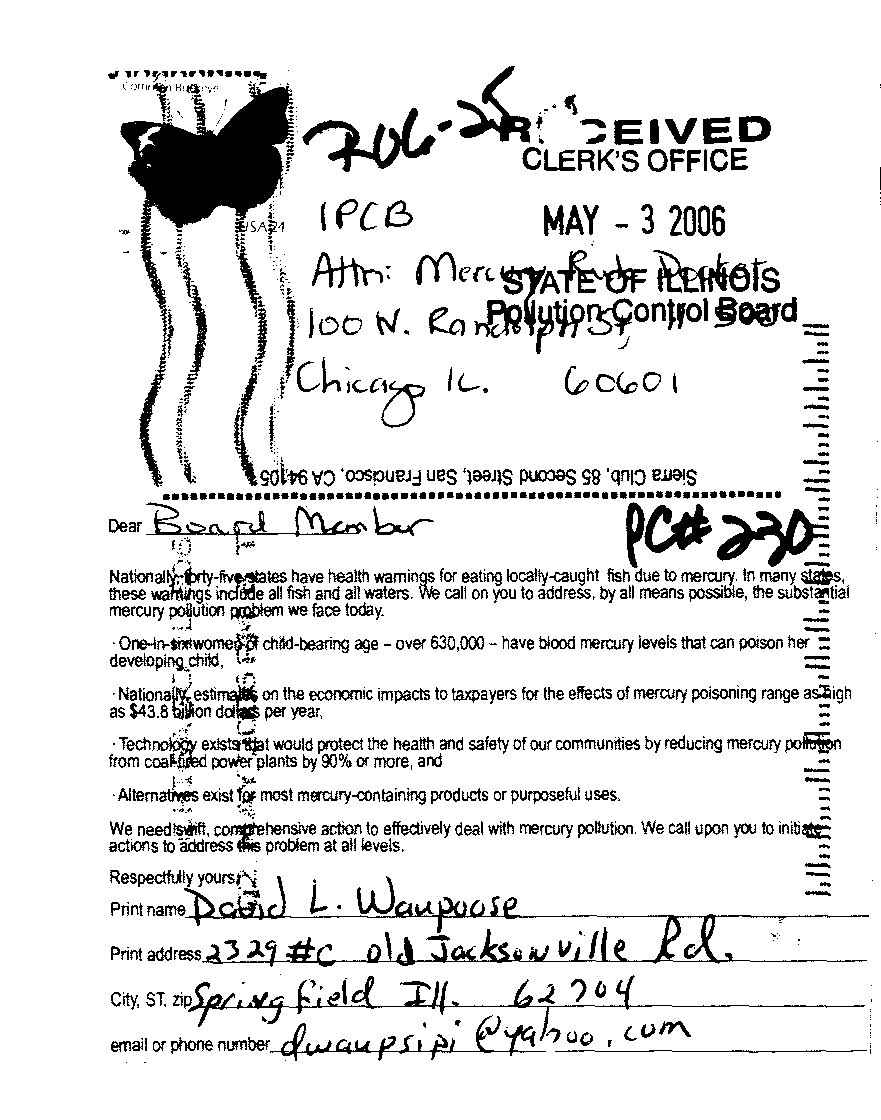 Common Buckeye
USA 24
R06-25
RECEIVED
CLERK'S OFFICE
MAY - 3 2006
STATE OF ILLINOIS
Pollution Control Board
IPCB
Attn: Mercury Rule Docket
100 N. Randolph St, 11-500
Chicago IL. 60601
Sierra Club, 85 Second Street, San Francisco, CA 94105
PC# 230
Dear Board Member
Nationally, forty-five states have health warnings for eating locally-caught fish due to mercury. In many states,
these warnings include all fish and all waters. We call on you to address, by all means possible, the substantial
mercury pollution problem we face today.
· One-in-six women of child-bearing age – over 630,000 – have blood mercury levels that can poison her
developing child,
· Nationally, estimates on the economic impacts to taxpayers for the effects of mercury poisoning range as high
as $43.8 billion dollars per year,
· Technology exists that would protect the health and safety of our communities by reducing mercury pollution
from coal-fired power plants by 90% or more, and
· Alternatives exist for most mercury-containing products or purposeful uses.
We need swift, comprehensive action to effectively deal with mercury pollution. We call upon you to initiate
actions to address this problem at all levels.
Respectfully yours,
Print name David L. Waupoose
Print address 2329 #C old Jacksonville Rd.
City, ST, zip Springfield Ill. 62704
email or phone number dwaupsipi@yahoo.com